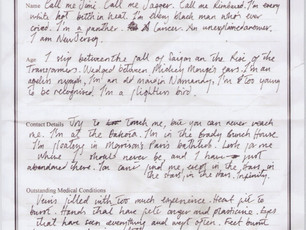 Name Call me Jimi. Call me Jagger. Call me Rimbaud. I'm every
white hot bitch in heat. I'm every black man who's ever
cried. I'm a panther. Lancer. An unexplained answer.
I am New Jersey.
Age I slip between the fall of Saigon and the Rise of the
Transformers. Wedged between Mickey Mouse's ears. I'm an
I'm an old maid in Normandy, I'm too young
to be recognised. I'm a flightless bird.
Contact Details Try to touch me, but you can never reach
me. I'm at the Bakoia. I'm in the Brady Bunch House.
I'm floating in Morrison's Paris bathtub. Look for me
where I should never be, and I have just
abandoned there. You can find me deaf in the stars, in
the stars, in the stars, Infinity.
Outstanding Medical Conditions
Veins filled with too much experience. Heart fit to
burst. Hands that have felt anger and plasticine. Eyes
that have seen everything and wept often. Feet burnt